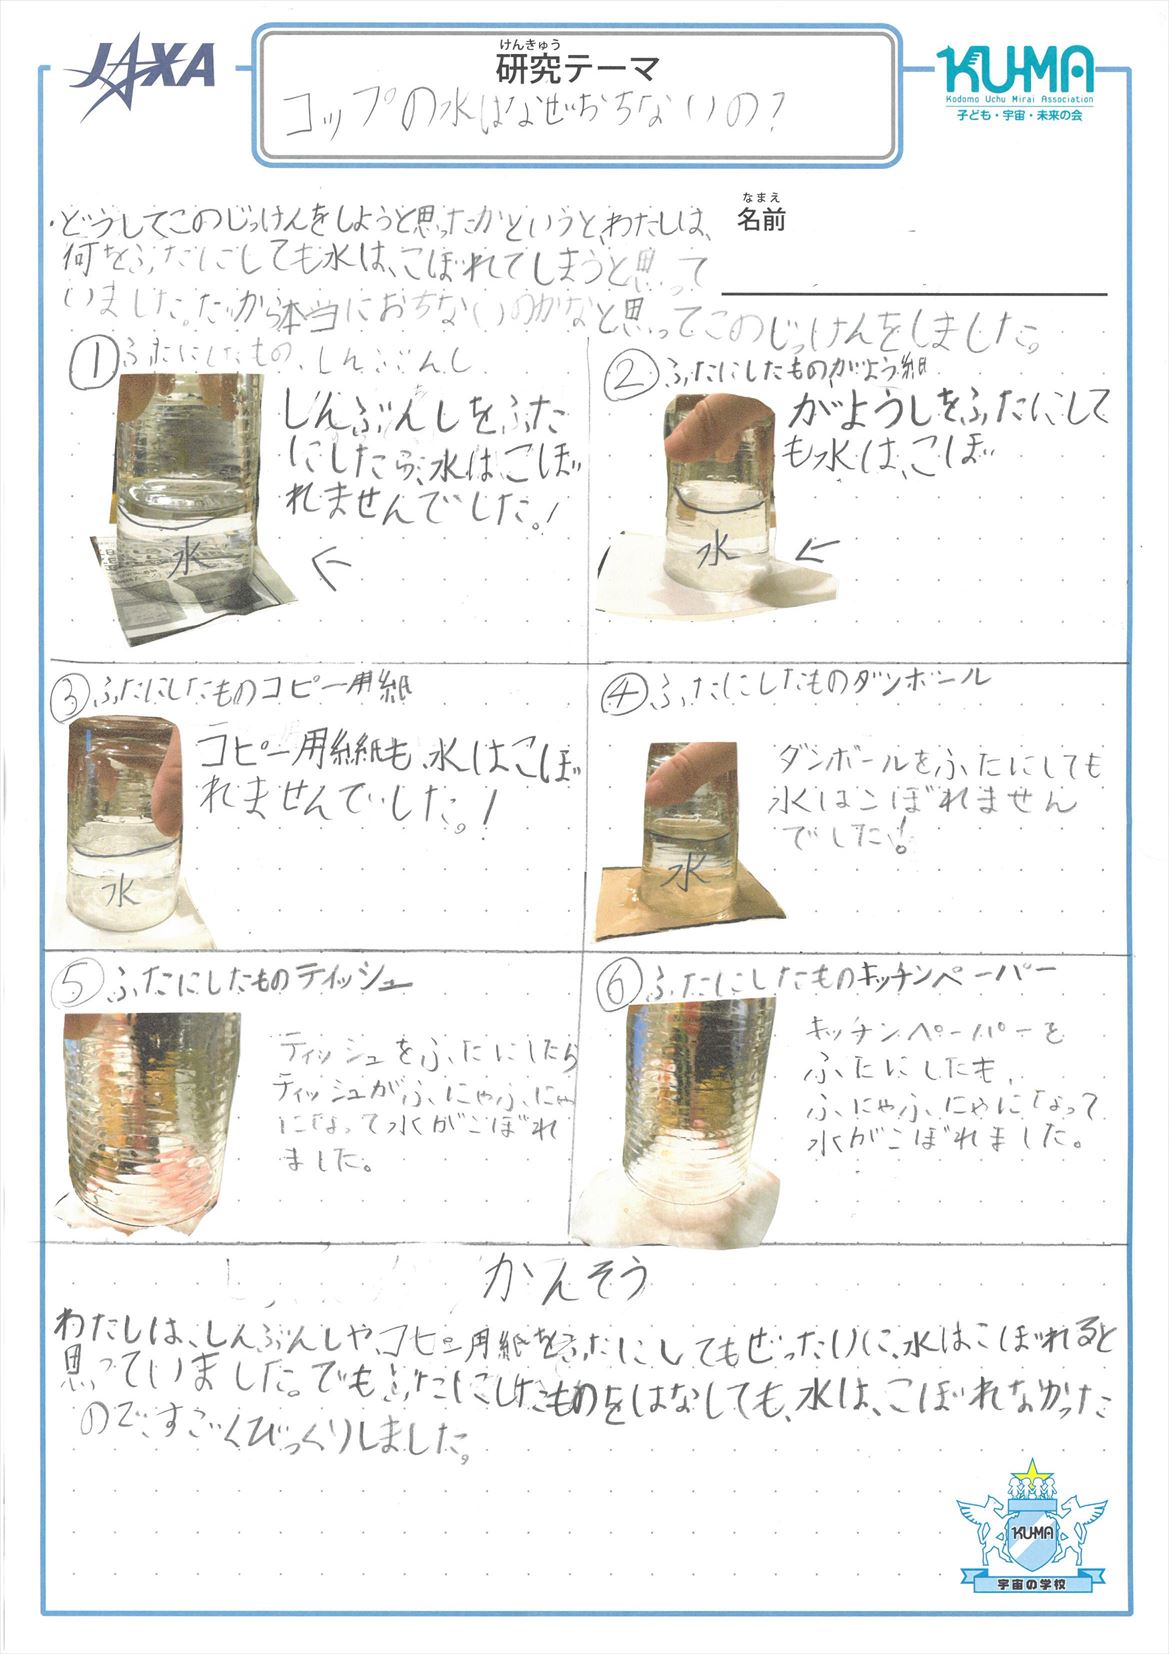 JAXA
けんきゅう
研究テーマ
コップの水はなぜおちないの?
KU-MA
Kodomo Uchu Mirai Association
子ども・宇宙・未来の会
なまえ
名前
・どうしてこのじっけんをしようと思ったかというと、わたしは、
何をふたにしても水は、こぼれてしまうと思って
いました。だから本当におちないのかなと思ってこのじっけんをしました。
①ふたにしたもの、しんぶんし
しんぶんしをふた
にしたら、水はこぼ
れませんでした。!
水
②ふたにしたものがよう紙
がようしをふたにして
も水は、こぼ
水
③ふたにしたものコピー用紙
コピー用紙も、水はこぼ
れませんでした。!
水
④ふたにしたものダンボール
ダンボールをふたにしても
水はこぼれません
でした!
水
⑤ふたにしたものティッシュ
ティッシュをふたにしたら
ティッシュがふにゃふにゃ
になって水がこぼれ
ました。
⑥ふたにしたものキッチンペーパー
キッチンペーパーを
ふたにしたも、
ふにゃふにゃになって
水がこぼれました。
かんそう
わたしは、しんぶんしや、コピー用紙をふたにしてもぜったいに、水はこぼれると
思っていました。でもふたにしたものをはなしても、水は、こぼれなかった
のですごくびっくりしました。
KU-MA
宇宙の学校